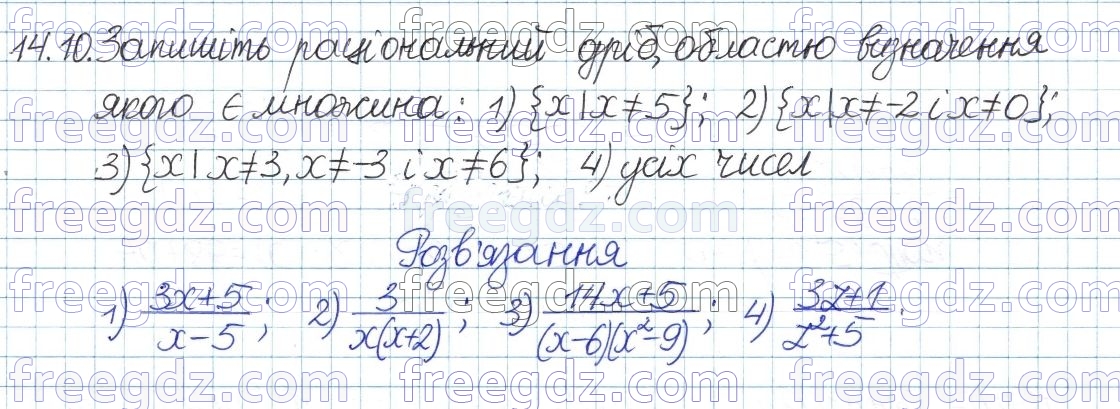 14.10. Запишіть раціональний дріб, областю визначення
якого є множина: 1) {x | x ≠ 5}; 2) {x | x ≠ -2 і x ≠ 0};
3) {x | x ≠ 3, x ≠ -3 і x ≠ 6}; 4) усіх чисел
Розв'язання
1) (3x+5)/(x-5); 2) 3/(x(x+2)); 3) (14x+5)/((x-6)(x²-9)); 4) (3z+1)/(z²+5).
freegdz.com